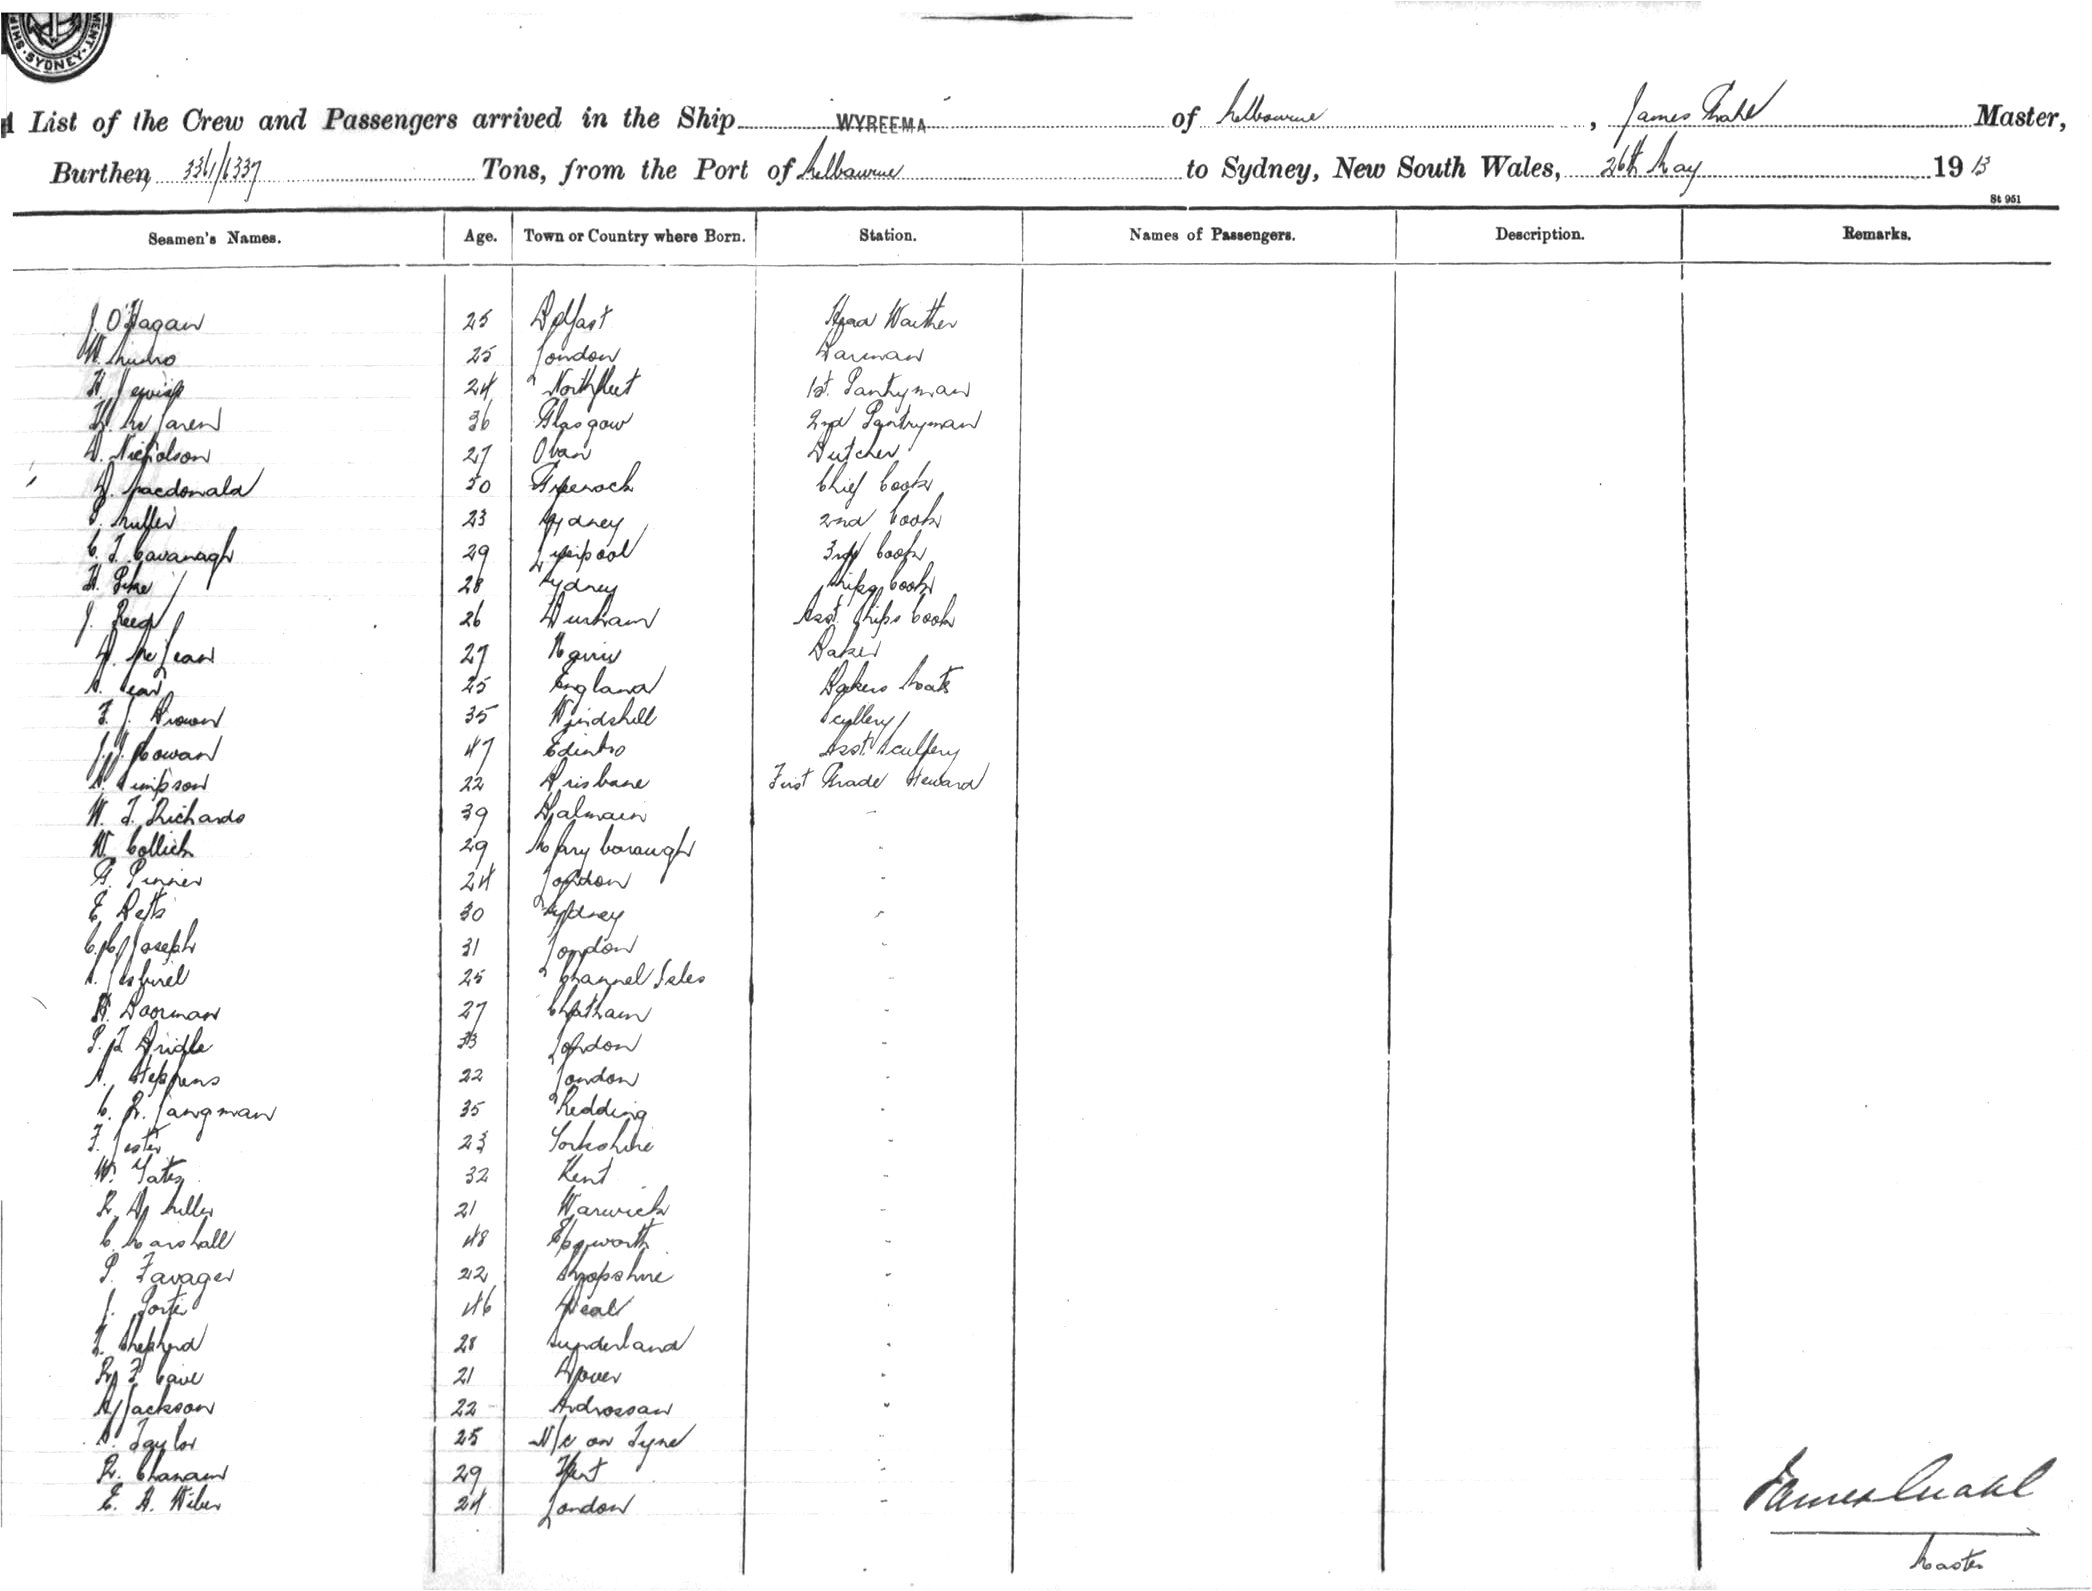 SYDNEY
A List of the Crew and Passengers arrived in the Ship WYREEMA of Melbourne, James Master,
Burthen, 3361/6337 Tons, from the Port of Melbourne to Sydney, New South Wales, 26th May 1913
St 951
Seamen's Names. Age. Town or Country where Born. Station. Names of Passengers. Description. Remarks.
J. O'Hagan 25 Belfast Head Waither
W. Munro 25 London Barman
H. 24 Northfleet 1st. Pantryman
McLaren 36 Glasgow 2nd Pantryman
D. Nicholson 27 Oban Butcher
Macdonald 30 Greenock Chief Cook
23 Sydney 2nd Cook
C. J. Cavanagh 29 Liverpool 3rd Cook
H. Pike 28 Sydney Ships Cook
J. Reed 26 Durham Asst. Ships Cook
D. McLean 27 Baker
25 England Bakers Mate
F. J. Brown 35 Windshill Scullery
J. J. Cowan 47 Edinbro Asst. Scullery
A. Simpson 22 Brisbane First Grade Steward
W. T. Richards 39 Balmain -
W. Collick 29 Maryborough -
G. Pinner 24 London -
E. Betts 30 Sydney -
C. C. Joseph 31 London -
25 Channel Isles -
H. Boorman 27 Chatham -
Bridle 33 London -
A. Stephens 22 London -
C. R. Langman 35 Redding -
F. Lester 23 Yorkshire -
W. Yates 32 Kent -
R. D. Miller 21 Warwick -
C. Marshall 48 Epworth -
P. Favager 22 Shropshire -
J. Porter 46 Deal -
Shepherd 28 Sunderland -
R. F. Cave 21 Dover -
A. Jackson 22 Ardrossan "
A. Taylor 25 N/c on Tyne -
R. 29 Kent -
E. A. 24 London -
James
Master